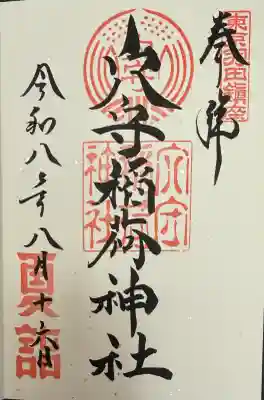 東京羽田鎮座
奉拝
穴守稲荷神社
穴守稲荷神社
令和八年八月十六日
夏詣